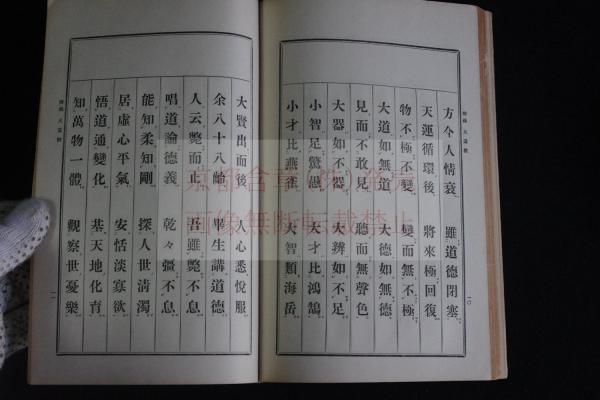 方今人情衰 雖道德閉塞
天運循環後 將來極回復
物不極不變 變而無不極
大道如無道 大德如無德
見而不敢見 聽而無聲色
大器如不器 大辨如不足
小智足驚愚 大才比鴻鵠
小才比燕雀 大智類海岳
一〇
大賢出而後 人心悉悅服
余八十八齡 畢生講道德
人云斃而止 吾雖斃不息
唱道論德義 乾々彊不息
能知柔知剛 探人世清濁
居虛心平氣 安恬淡寡欲
悟道通變化 基天地化育
知萬物一體 觀察世憂樂
一一
画像無断転載禁止